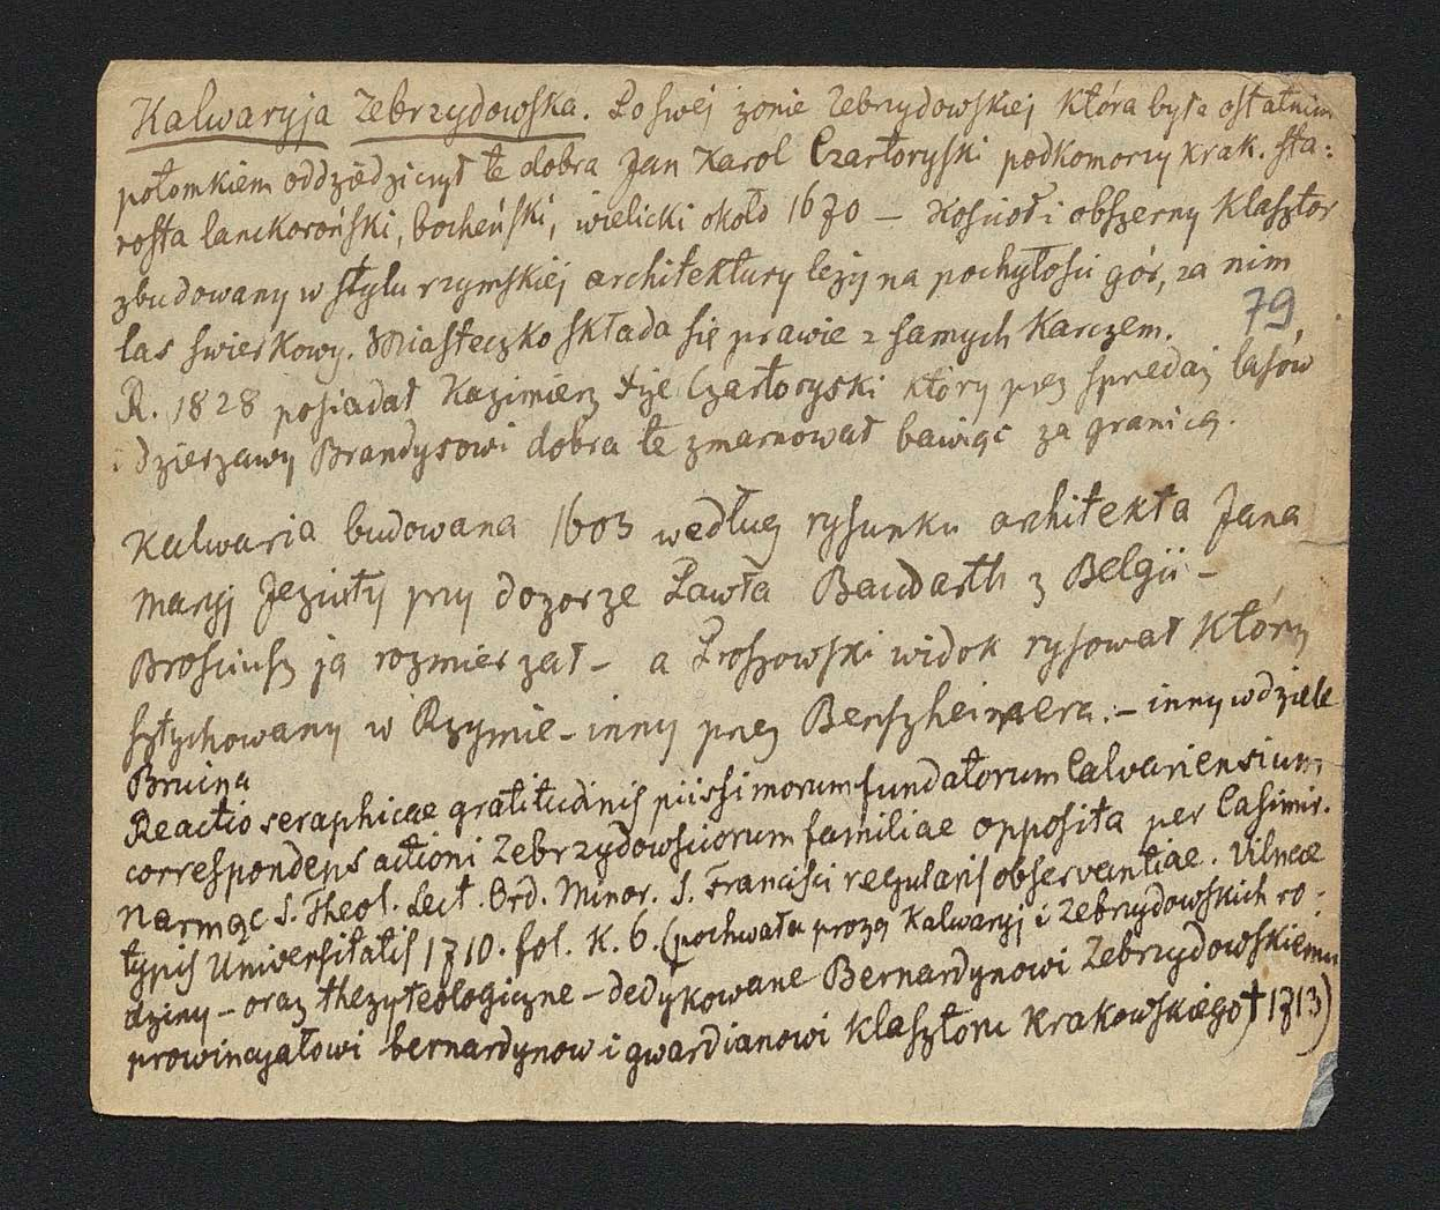 Kalwaryja Zebrzydowska. Po swej żonie Zebrzydowskiej która była ostatnim
potomkiem oddziedziczył te dobra Jan Karol Czartoryski podkomorzy krak. sta:
rosta lanckoroński, bocheński, wielicki około 1670 – Kosciół i obszerny klasztor
zbudowany w stylu rzymskiej architektury leży na pochyłości gór, za nim
las swierkowy. Miasteczko składa się prawie z samych karczem.
79.
R. 1828 posiadał Kazimierz Xże Czartoryski który przez sprzedaż lasów
i dzierzawy Brandysowi dobra te zmarnował bawiąc za granicą.
Kalwaria budowana 1603 według rysunku architekta Jana
Maryj Jezuity przy dozorze Pawła Baudarth z Belgii –
Brosciusz ją rozmierzał – a Proszowski widok rysował który
sztychowany w Rzymie – inny przez – inny w dziele
Bruina
Reactio seraphicae gratitudinis piissimorum fundatorum Calvariensium
correspondens actioni Zebrzydowsciorum familiae opposita per Casimir.
Narmąc S. Theol. Lect. Ord. Minor. S. Francisci regularis observantiae. Vilnae
typis Universitatis 1710. fol. K. 6. (pochwała prozą Kalwaryj i Zebrzydowskich ro:
dziny – oraz thezy teologiczne – dedykowane Bernardynowi Zebrzydowskiemu
prowincyałowi bernardynow i gwardianowi klasztoru krakowskiego † 1713)